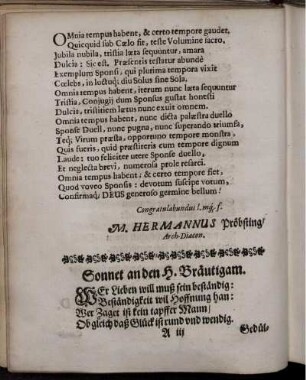 OMnia tempus habent, & certo tempore gaudet,
Quicquid sub Cœlo fit, teste Volumine sacro,
Jubila nubila, tristia læta sequuntur, amara
Dulcia: Sic est, Præsentis testatur abundè
Exemplum Sponsi, qui plurima tempora vixit
Cœlebs, in luctuq; diu Solus sine Sola.
Omnia tempus habent, iterum nunc læta sequuntur
Tristia, Conjugij dum Sponsus gustat honesti
Dulcit, tristitiem lætus nunc exuit omnem.
Omnia tempus habent, nunc dicta palæstra duello
Sponse Duell, nunc pugna, nunc superando triumfa,
Teq; Virum præsta, opportuno tempore monstra,
Quis fueris, quid præstiteris cum tempore dignum
Laude: tuo feliciter utere Sponse duello,
Et neglecta brevi, numerosa prole resarci.
Omnia tempus habent; & certo tempore fiet,
Quod voveo Sponsis: devotum suscipe votum,
Confirmaq; DEUS generoso germine bellum!
Congratulabundus l. mq; f.
M. HERMANNUS Pröbsting/
Arch-Diacon.
Sonnet an den H. Bräutigam.
WEr Lieben will muß sein beständig:
Beständigkeit wil Hoffnung han:
Wer Zaget ist kein tapffer Mann;
Ob gleich daß Glück ist rund und wendig.
A iij
Gedül-